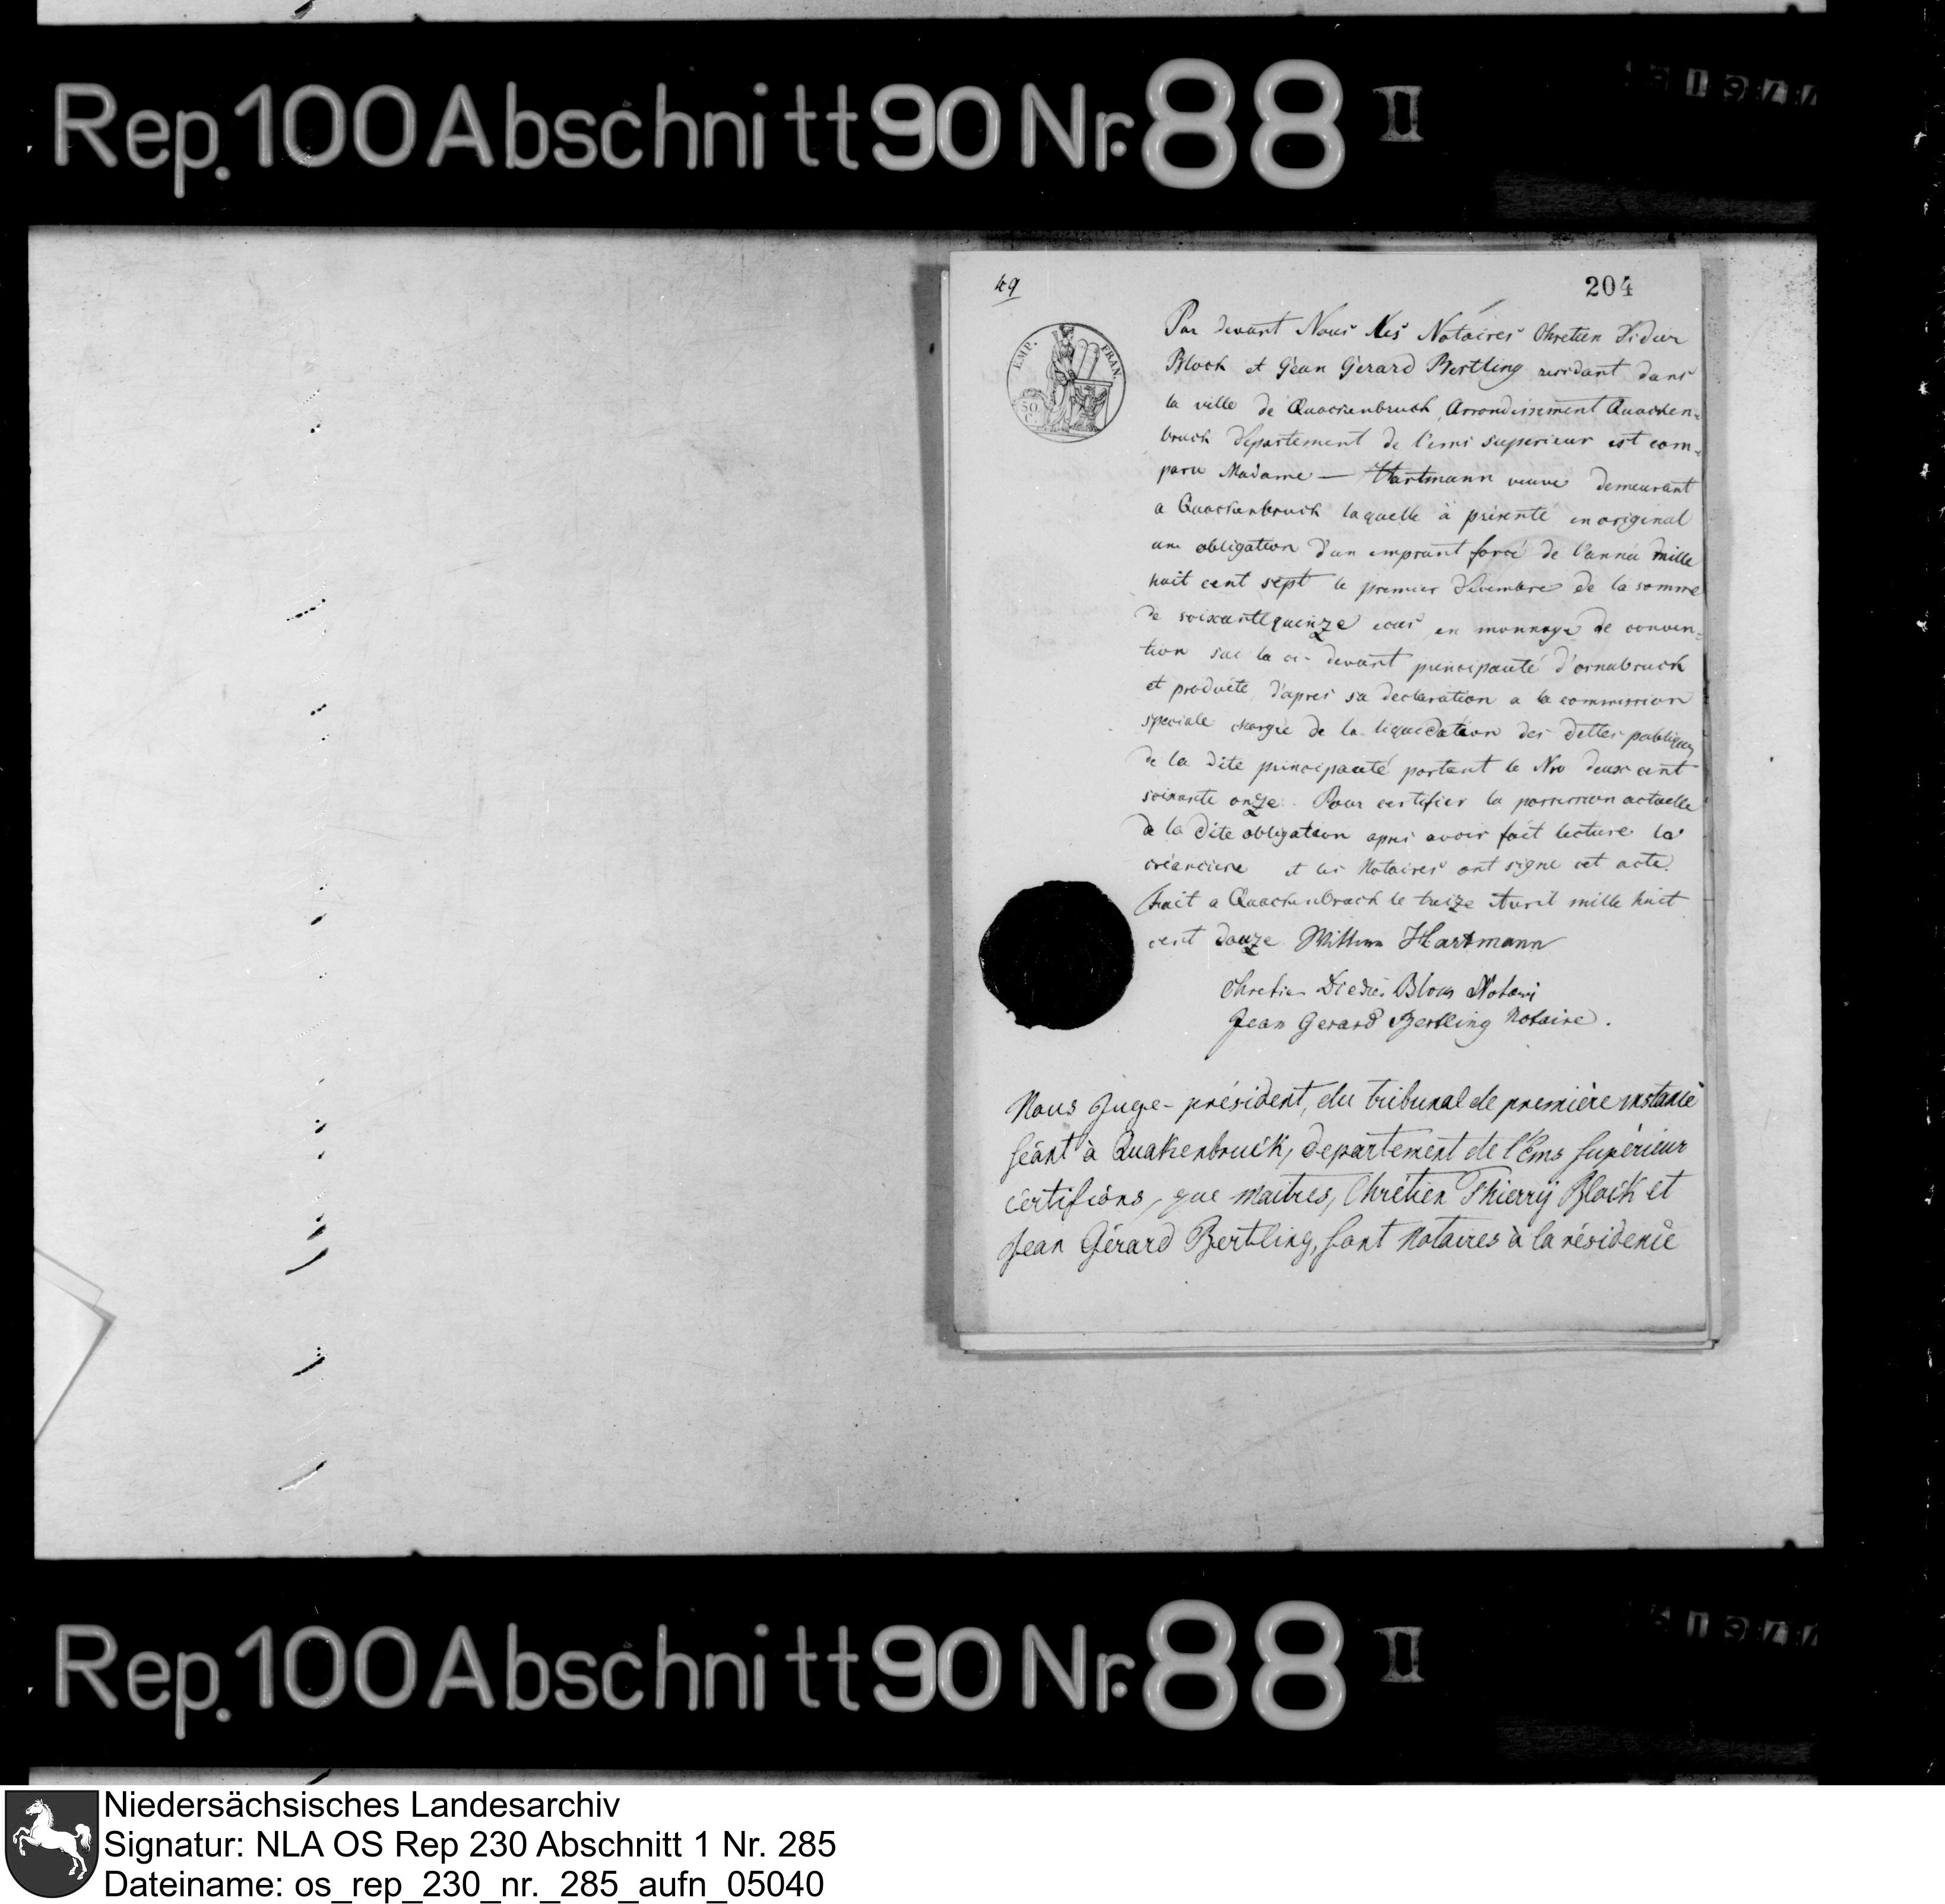 Rep. 100 Abschnitt 90 Nr. 88 II
49
204
EMP. FRAN.
50 C.
Par devant Nous Les Notaires Chretien Didier
Block et Géan Gerard Bertling residant dans
la ville de Quackenbruck Arrondissement Quacken-
bruck Departement de l'ems superieur est com-
paru Madame — Hartmann veuve demeurant
a Quackenbruck laquelle à présenté en original
une obligation d'un emprunt forcé de l'année mille
huit cent sept le premier Decembre de la somme
de soixantequinze ecus en monnaye de conven-
tion sur la ci-devant principauté d'osnabruck
et produite d'apres sa declaration a la commission
speciale chargée de la liquidation des dettes publiques
de la dite principauté portant le Nro deux cent
soixante onze. Pour certifier la possession actuelle
de la dite obligation apres avoir fait lecture la
créanciere et les Notaires ont signé cet acte.
Fait a Quackenbruck le treize Avril mille huit
cent douze Wittwe Hartmann
Chretien Diedier Block Notaire
Jean Gerard Bertling Notaire.
Nous Juge-président, du tribunal de première instance
séant à Quakenbruck, departement de l'Ems supérieur
certifions, que maitres, Chrétien Thierrÿ Block et
Jean Gérard Bertling, sont Notaires à la résidence
Rep. 100 Abschnitt 90 Nr. 88 II
Niedersächsisches Landesarchiv
Signatur: NLA OS Rep 230 Abschnitt 1 Nr. 285
Dateiname: os_rep_230_nr._285_aufn_05040